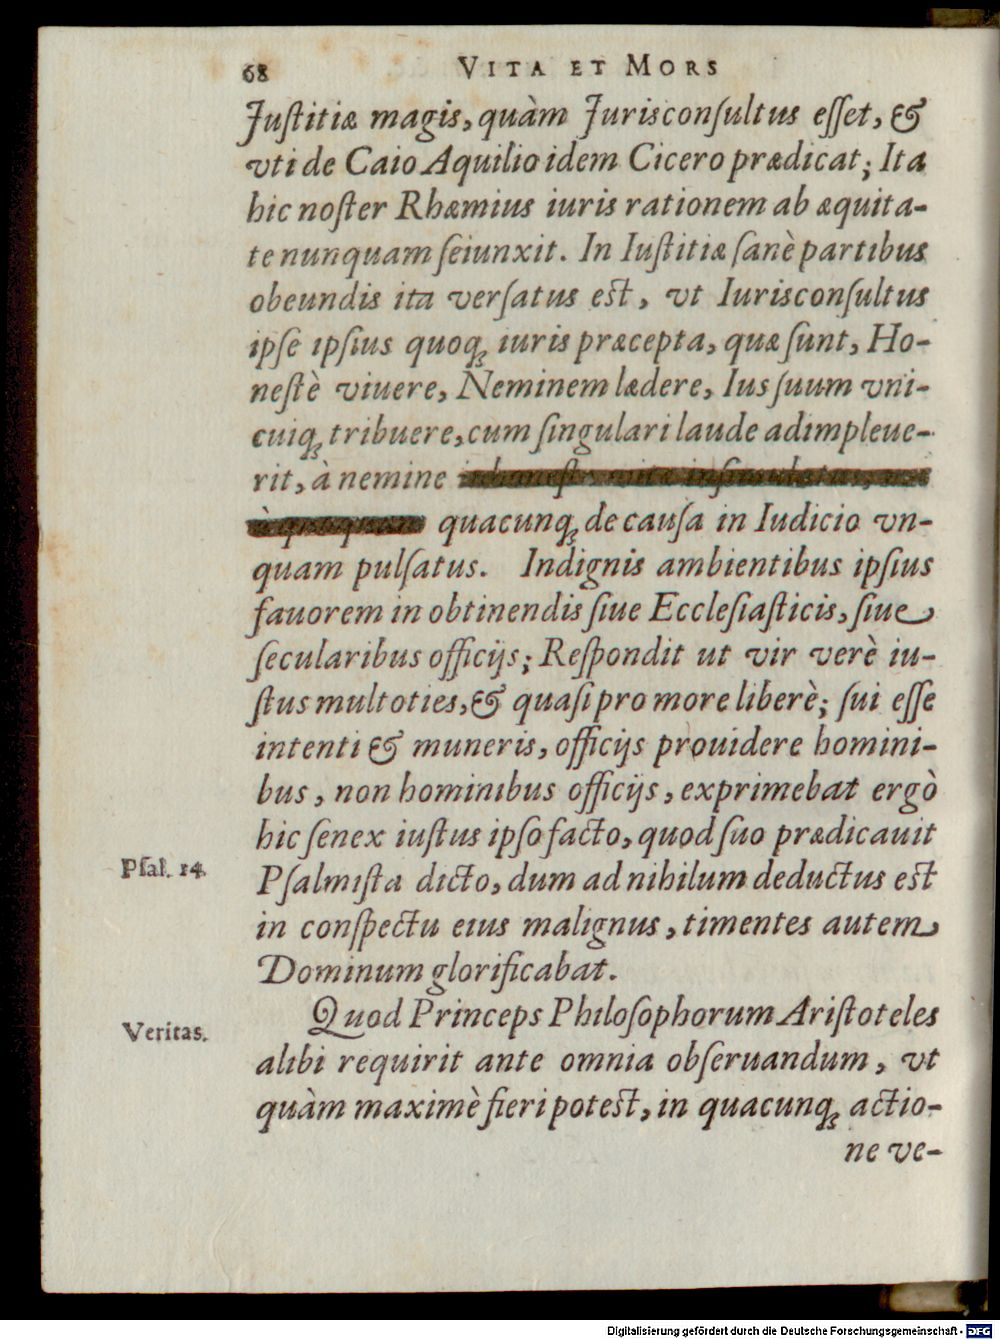 68 VITA ET MORS
Juſtitiæ magis, quàm Jurisconſultus eſſet, &
vti de Caio Aquilio idem Cicero prædicat; Ita
hic noſter Rhæmius iuris rationem ab æquita-
te nunquam ſeiunxit. In Iuſtitiæ ſanè partibus
obeundis ita verſatus eſt, vt Iurisconſultus
ipſe ipſius quoq; iuris præcepta, quæ ſunt, Ho-
neſtè viuere, Neminem lædere, Ius ſuum vni-
cuiq; tribuere, cum ſingulari laude adimpleue-
rit, à nemine
quacunq; de cauſa in Iudicio vn-
quam pulſatus. Indignis ambientibus ipſius
fauorem in obtinendis ſiue Eccleſiaſticis, ſiue
ſecularibus officijs; Reſpondit ut vir verè iu-
ſtus multoties, & quaſi pro more liberè; ſui eſſe
intenti & muneris, officijs prouidere homini-
bus, non hominibus officijs, exprimebat ergò
hic ſenex iuſtus ipſo facto, quod ſuo prædicauit
Pſal. 14. Pſalmiſta dicto, dum ad nihilum deductus eſt
in conſpectu eius malignus, timentes autem
Dominum glorificabat.
Veritas. Quod Princeps Philoſophorum Ariſtoteles
alibi requirit ante omnia obſeruandum, vt
quàm maximè fieri poteſt, in quacunq; actio-
ne ve-
Digitalisierung gefördert durch die Deutsche Forschungsgemeinschaft - DFG